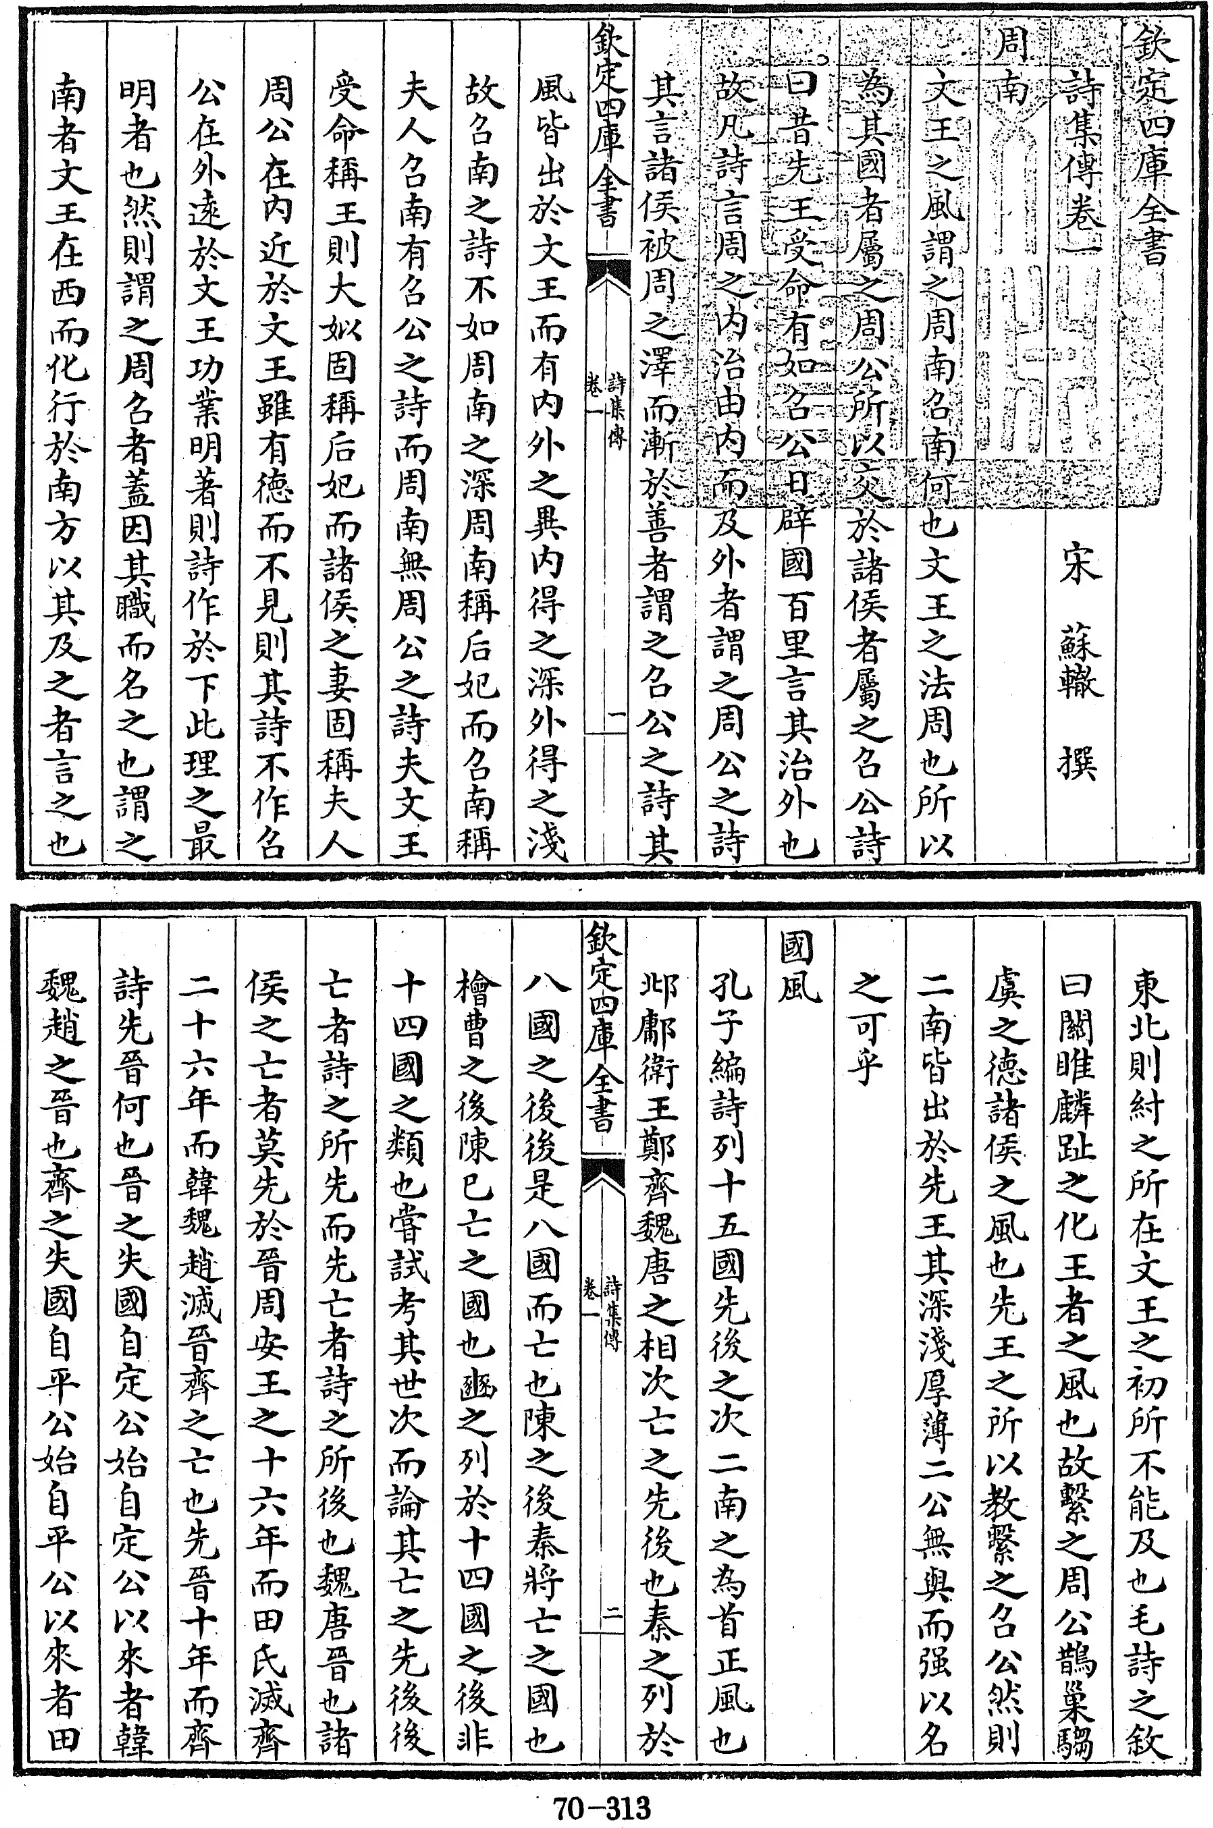 欽定四庫全書
詩集傳卷一
宋 蘇轍 撰
周南
文王之風謂之周南召南何也文王之法周也所以
為其國者屬之周公所以交於諸侯者屬之召公詩
曰昔先王受命有如召公日辟國百里言其治外也
故凡詩言周之内治由内而及外者謂之周公之詩
其言諸侯被周之澤而漸於善者謂之召公之詩其
欽定四庫全書
詩集傳
卷一
一
風皆出於文王而有内外之異内得之深外得之淺
故召南之詩不如周南之深周南稱后妃而召南稱
夫人召南有召公之詩而周南無周公之詩夫文王
受命稱王則大姒固稱后妃而諸侯之妻固稱夫人
周公在内近於文王雖有德而不見則其詩不作召
公在外遠於文王功業明著則詩作於下此理之最
明者也然則謂之周召者蓋因其職而名之也謂之
南者文王在西而化行於南方以其及之者言之也
東北則紂之所在文王之初所不能及也毛詩之敘
曰關雎麟趾之化王者之風也故繫之周公鵲巢騶
虞之德諸侯之風也先王之所以教繫之召公然則
二南皆出於先王其深淺厚薄二公無與而强以名
之可乎
國風
孔子編詩列十五國先後之次二南之為首正風也
邶鄘衛王鄭齊魏唐之相次亡之先後也秦之列於
欽定四庫全書
詩集傳
卷一
二
八國之後後是八國而亡也陳之後秦將亡之國也
檜曹之後陳已亡之國也豳之列於十四國之後非
十四國之類也嘗試考其世次而論其亡之先後後
亡者詩之所先而先亡者詩之所後也魏唐晉也諸
侯之亡者莫先於晉周安王之十六年而田氏滅齊
二十六年而韓魏趙滅晉齊之亡也先晉十年而齊
詩先晉何也晉之失國自定公始自定公以來者韓
魏趙之晉也齊之失國自平公始自平公以來者田
70-313